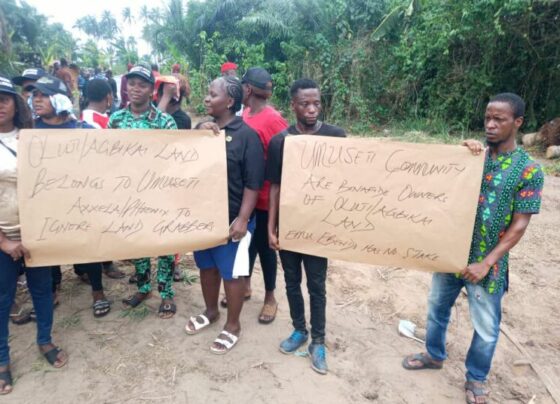 OLUTI/AGBIKAI LAND
BELONGS TO UMUSETI
AXXELA/PHOENIX TO
IGNORE LAND GRABBER
UMUSETI COMMUNITY
ARE BONAFIDE OWNERS
OF OLUTI/AGBIKAI
LAND
EMU EBENDO HAS NO STAKE